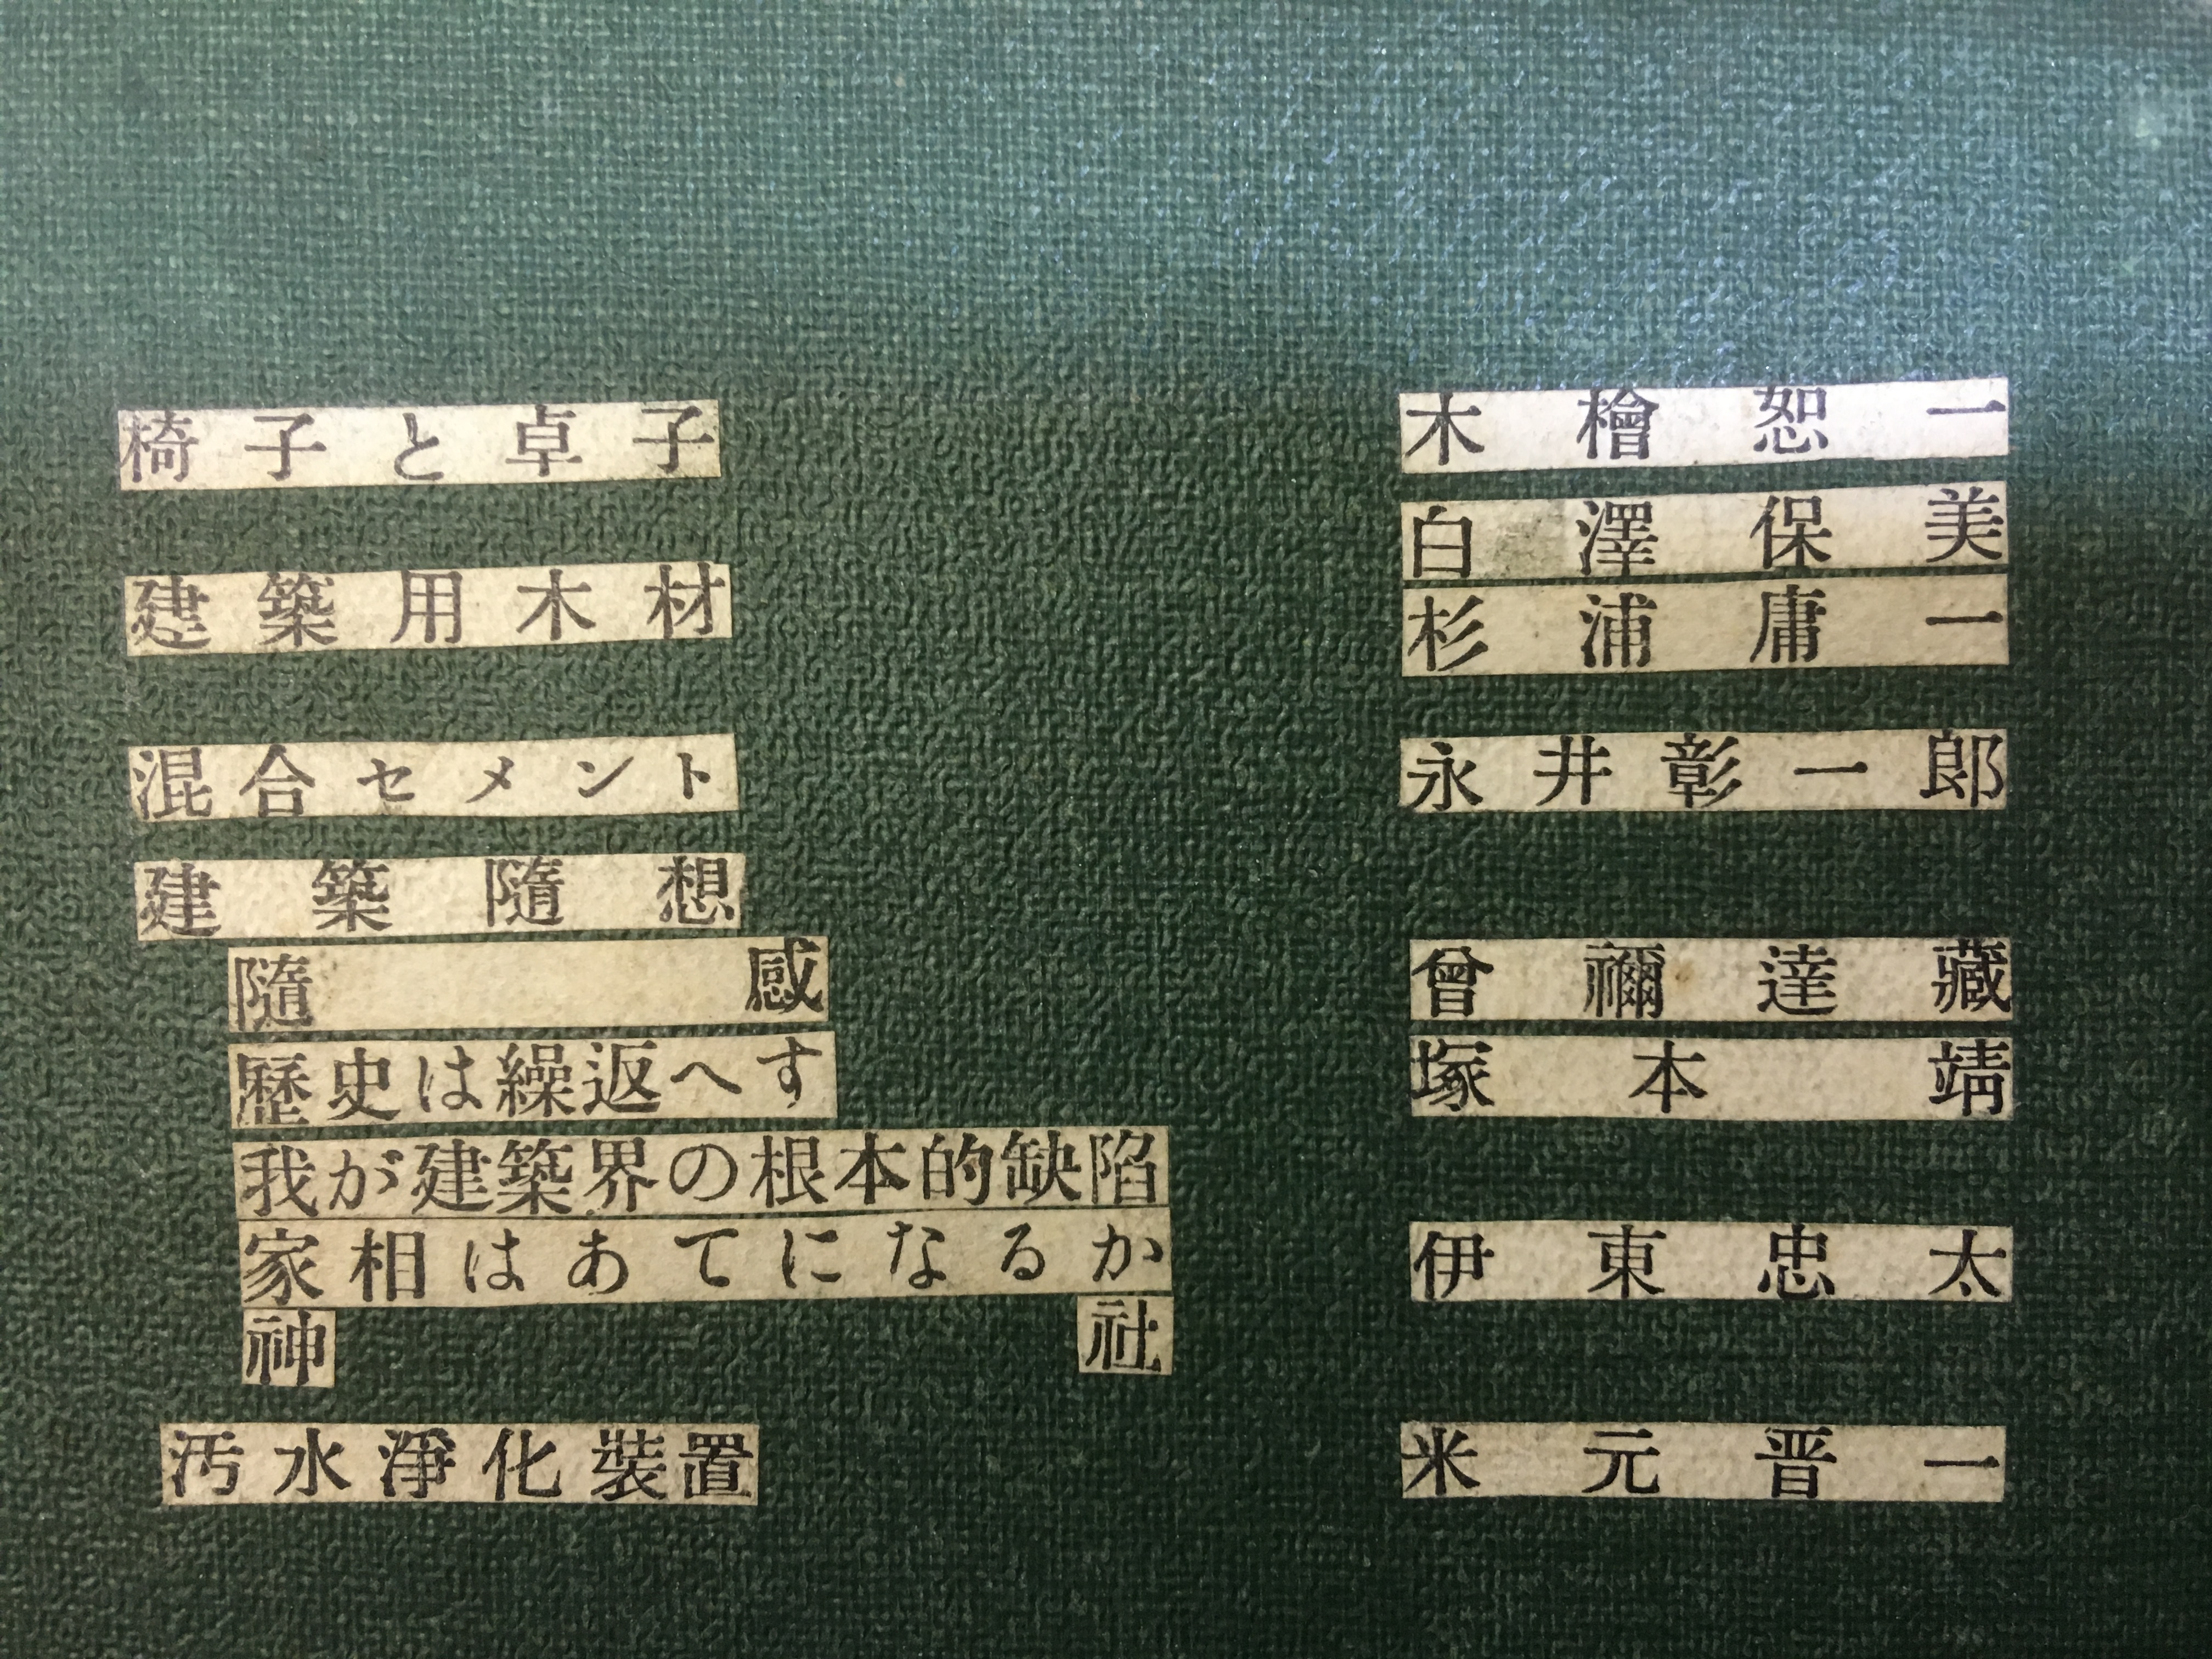 椅子と卓子
木檜恕一
建築用木材
白澤保美
杉浦庸一
混合セメント
永井彰一郎
建築隨想
隨感
曾禰達藏
歷史は繰返へす
塚本靖
我が建築界の根本的缺陷
家相はあてになるか
伊東忠太
神社
汚水淨化裝置
米元晋一